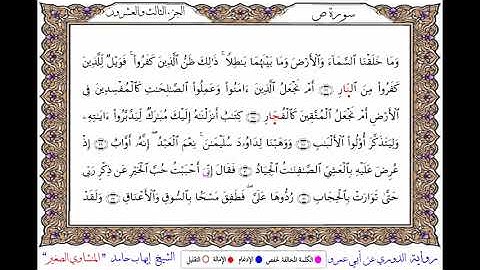 سورة ص
الجزء الثالث والعشرون
وَمَا خَلَقْنَا ٱلسَّمَآءَ وَٱلْأَرْضَ وَمَا بَيْنَهُمَا بَٰطِلًا ۚ ذَٰلِكَ ظَنُّ ٱلَّذِينَ كَفَرُوا۟ ۚ فَوَيْلٌ لِّلَّذِينَ
كَفَرُوا۟ مِنَ ٱلنَّارِ أَمْ نَجْعَلُ ٱلَّذِينَ ءَامَنُوا۟ وَعَمِلُوا۟ ٱلصَّٰلِحَٰتِ كَٱلْمُفْسِدِينَ فِى
ٱلْأَرْضِ أَمْ نَجْعَلُ ٱلْمُتَّقِينَ كَٱلْفُجَّارِ كِتَٰبٌ أَنزَلْنَٰهُ إِلَيْكَ مُبَٰرَكٌ لِّيَدَّبَّرُوٓا۟ ءَايَٰتِهِۦ
وَلِيَتَذَكَّرَ أُو۟لُوا۟ ٱلْأَلْبَٰبِ وَوَهَبْنَا لِدَاوُۥدَ سُلَيْمَٰنَ ۚ نِعْمَ ٱلْعَبْدُ ۖ إِنَّهُۥٓ أَوَّابٌ إِذْ
عُرِضَ عَلَيْهِ بِٱلْعَشِىِّ ٱلصَّٰفِنَٰتُ ٱلْجِيَادُ فَقَالَ إِنِّىَ أَحْبَبْتُ حُبَّ ٱلْخَيْرِ عَن ذِكْرِ رَبِّى
حَتَّىٰ تَوَارَتْ بِٱلْحِجَابِ رُدُّوهَا عَلَىَّ ۖ فَطَفِقَ مَسْحًۢا بِٱلسُّوقِ وَٱلْأَعْنَاقِ وَلَقَدْ
رواية الدوري عن أبي عمرو
الكلمة المخالفة لحفص الإدغام الإمالة التقليل
الشيخ إيهاب حامد "المنشاوي الصغير"